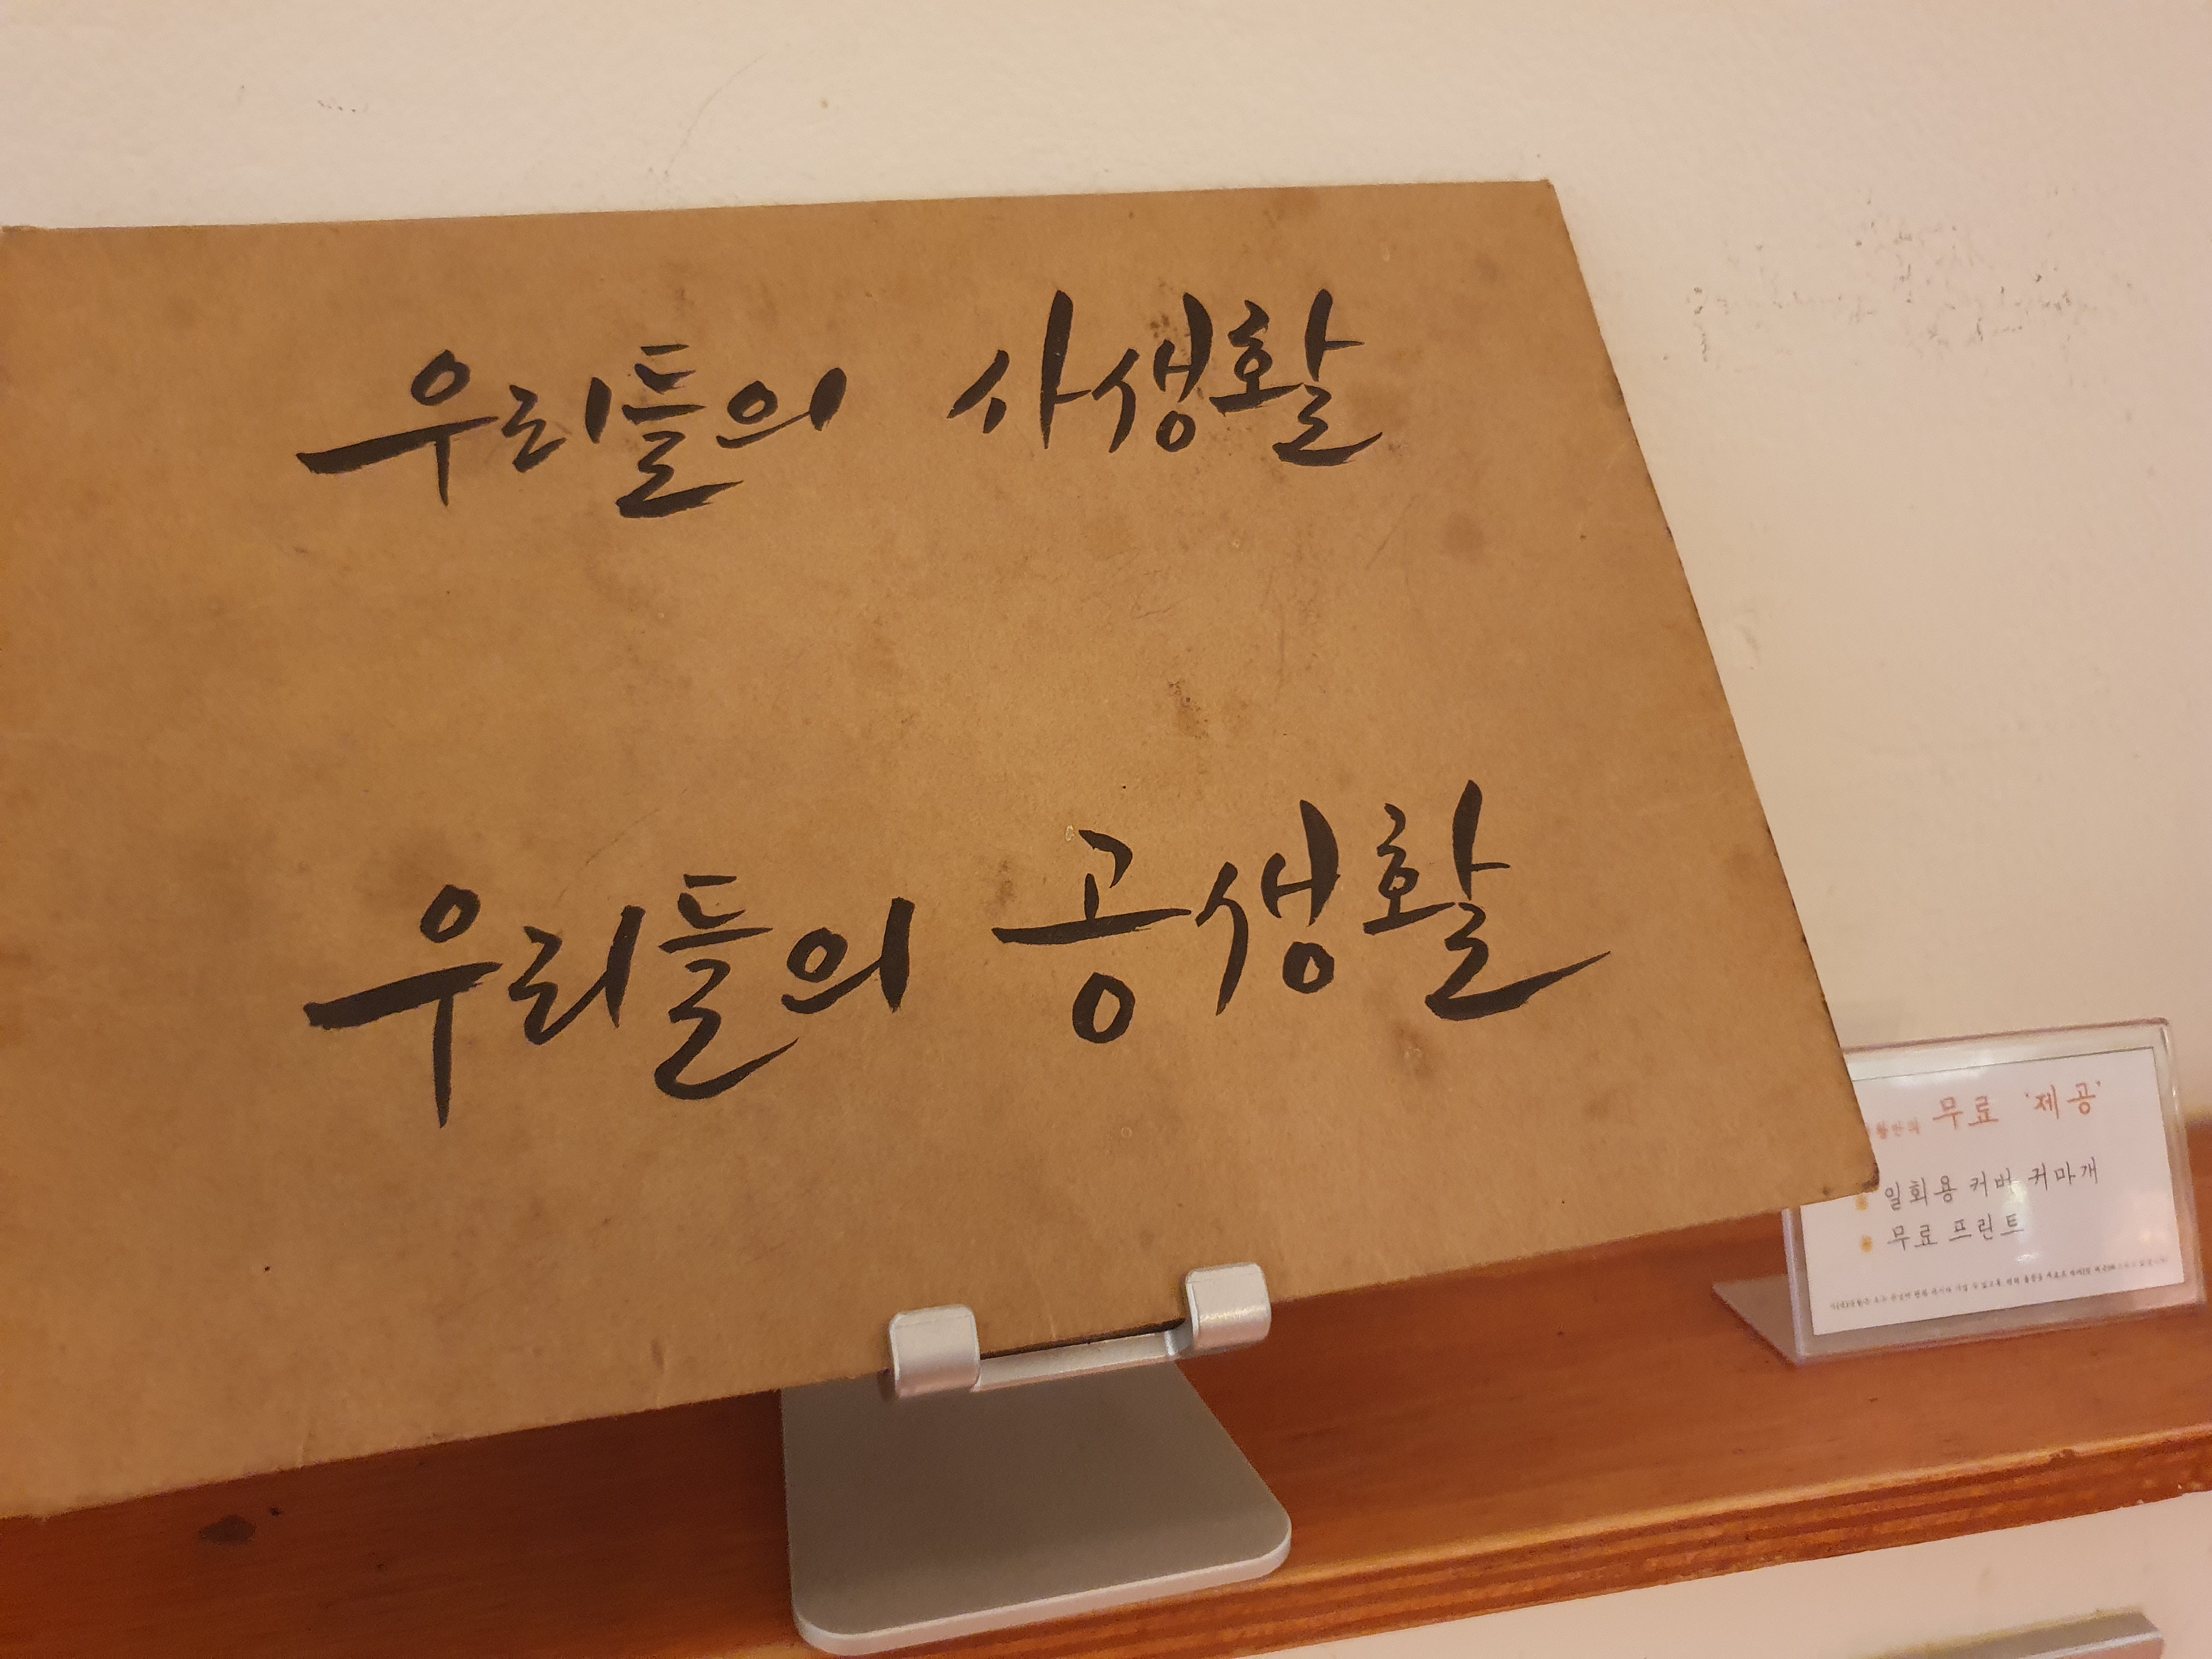 우리들의 사생활
우리들의 공생활
무료 '제공'
일회용 커버 귀마개
무료 프린트